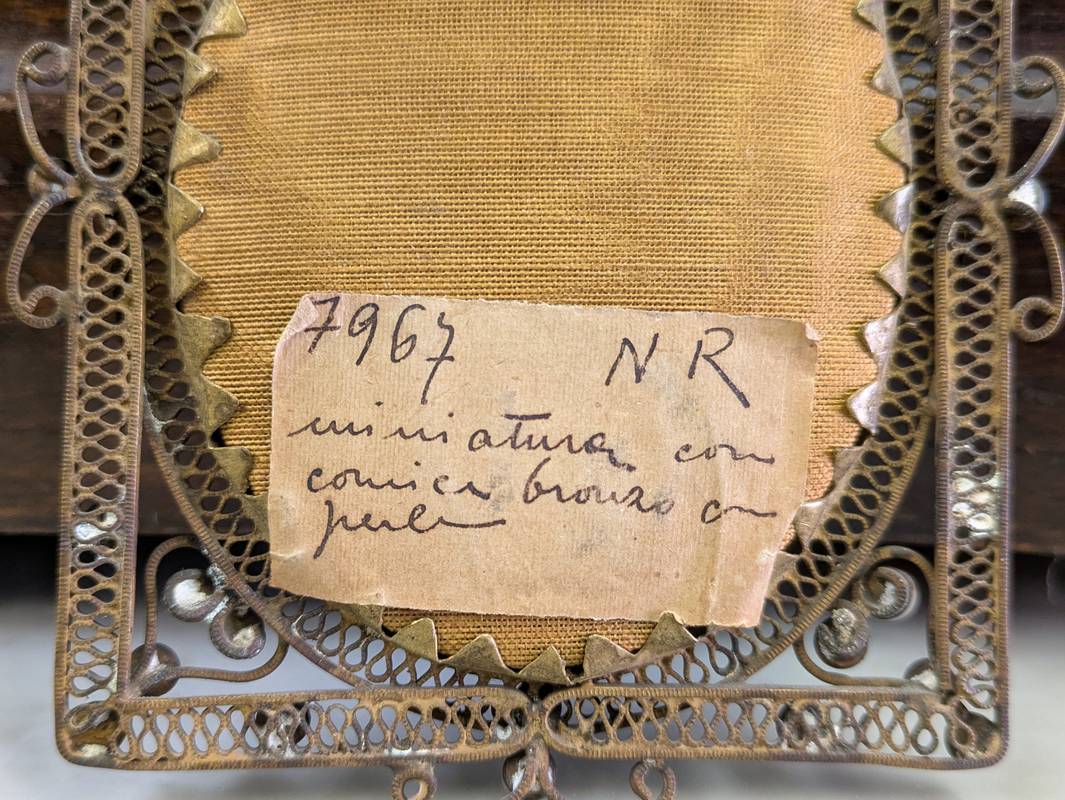 7967 NR
miniatura con
cornice bronzo con
perle